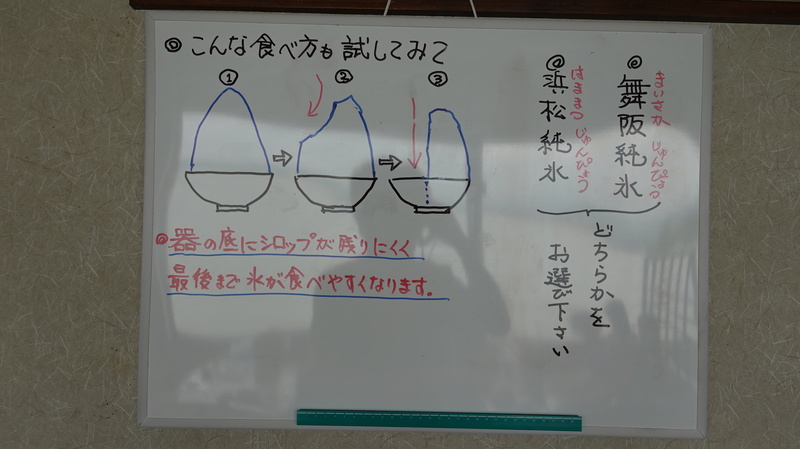 ◎こんな食べ方も試してみて
① ② ③
◎器の底にシロップが残りにくく
最後まで氷が食べやすくなります。
◎舞阪純氷
まいさか じゅんぴょう
◎浜松純氷
はままつ じゅんぴょう
どちらかを
お選び下さい